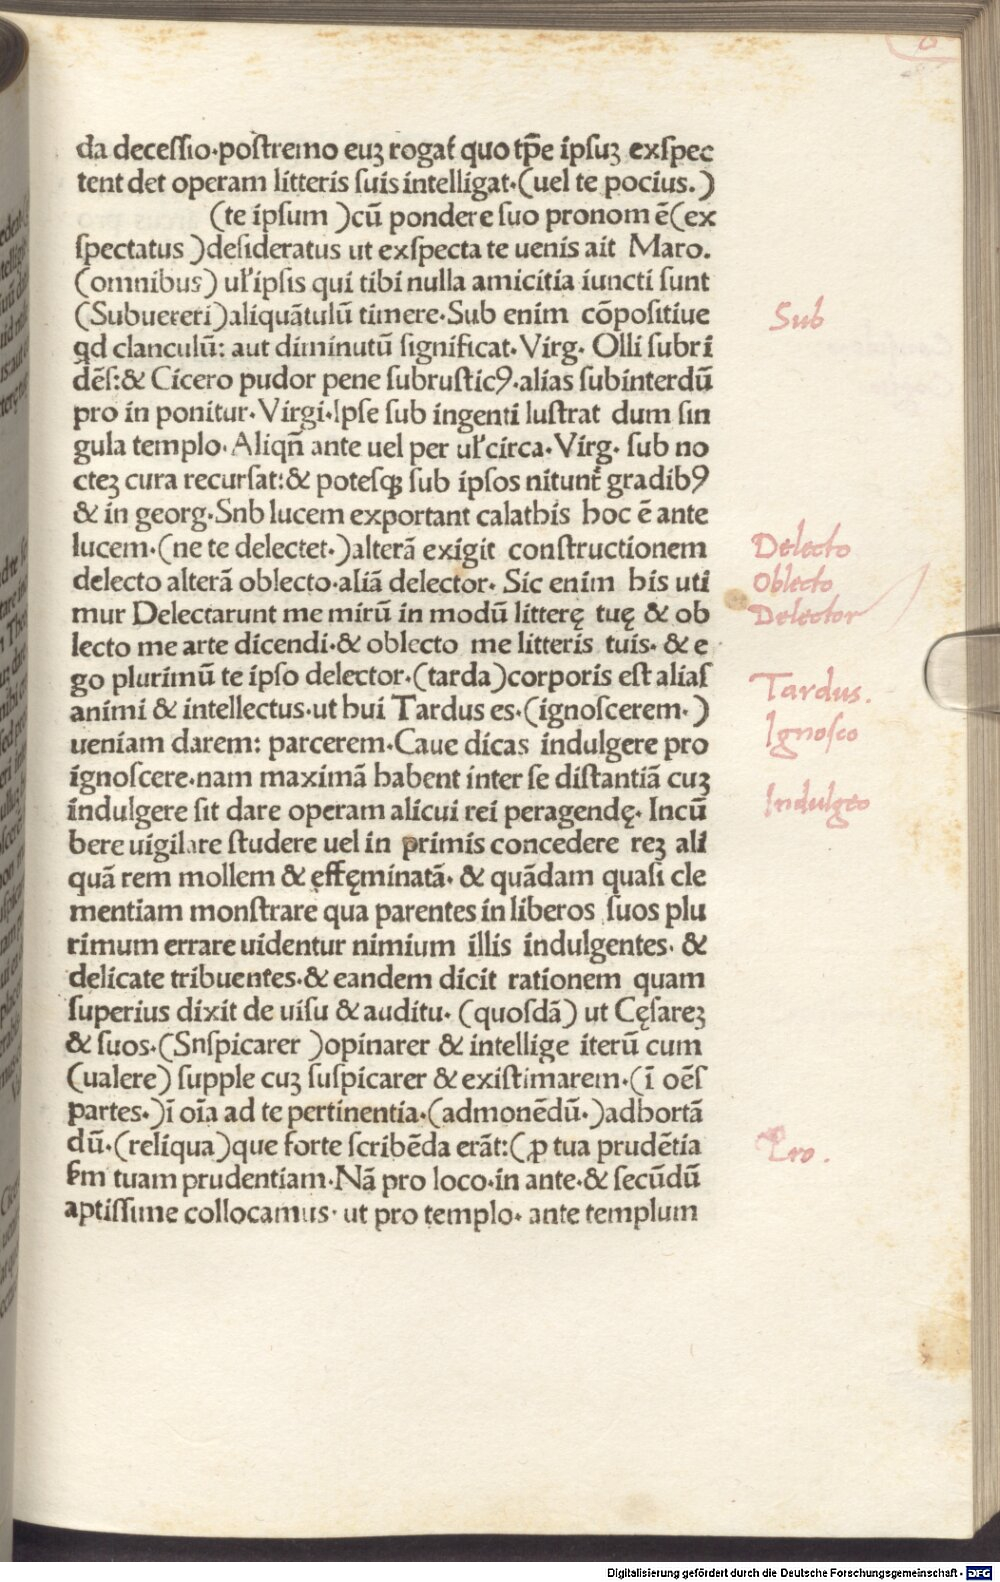 da decessio·postremo euʒ rogat̃ quo tp̄e ipſuʒ exſpec
tent det operam litteris ſuis intelligat·(uel te pocius.)
(te ipſum )cū pondere ſuo pronom ē(ex
ſpectatus )deſideratus ut exſpecta te uenis ait Maro.
(omnibus) ul' ipſis qui tibi nulla amicitia iuncti ſunt
(Subuereri)aliquātulū timere·Sub enim cōpoſitiue
qd clanculū: aut diminutū ſignificat·Virg· Olli ſubri
dēſ:& Cicero pudor pene ſubruſticꝰ·alias ſubinterdū
pro in ponitur·Virgi·Ipſe ſub ingenti luſtrat dum ſin
gula templo·Aliqn̄ ante uel per ul' circa·Virg· ſub no
cteʒ cura recurſat:& poteſqꝫ ſub ipſos nitunt̃ gradibꝰ
& in georg·Snb lucem exportant calathis hoc ē ante
lucem·(ne te delectet·)alterā exigit constructionem
delecto alterā oblecto·aliā delector· Sic enim his uti
mur Delectarunt me mirū in modū litterę tuę & ob
lecto me arte dicendi·& oblecto me litteris tuis· & e
go plurimū te ipſo delector·(tarda)corporis eſt aliaſ
animi & intellectus·ut hui Tardus es·(ignoſcerem· )
ueniam darem: parcerem·Caue dicas indulgere pro
ignoſcere·nam maximā habent inter ſe diſtantiā cuʒ
indulgere ſit dare operam alicui rei peragendę· Incū
bere uigilare ſtudere uel in primis concedere reʒ ali
quā rem mollem & effęminatā· & quādam quaſi cle
mentiam monſtrare qua parentes in liberos ſuos plu
rimum errare uidentur nimium illis indulgentes· &
delicate tribuentes·& eandem dicit rationem quam
ſuperius dixit de uiſu & auditu· (quoſdā) ut Cęſareʒ
& ſuos·(Snſpicarer )opinarer & intellige iterū cum
(ualere) ſupple cuʒ ſuſpicarer & exiſtimarem·(ī oēſ
partes·)ī oīa ad te pertinentia·(admonēdū·)adhortā
dū·(reliqua)que forte ſcribēda erāt:(ꝓ tua prudētia
ſm tuam prudentiam·Nā pro loco·in ante·& ſecūdū
aptiſſime collocamus· ut pro templo· ante templum
Sub
Delecto
Oblecto
Delector
Tardus.
Ignoſco
Indulgeo
Pro.
Digitalisierung gefördert durch die Deutsche Forschungsgemeinschaft - DFG